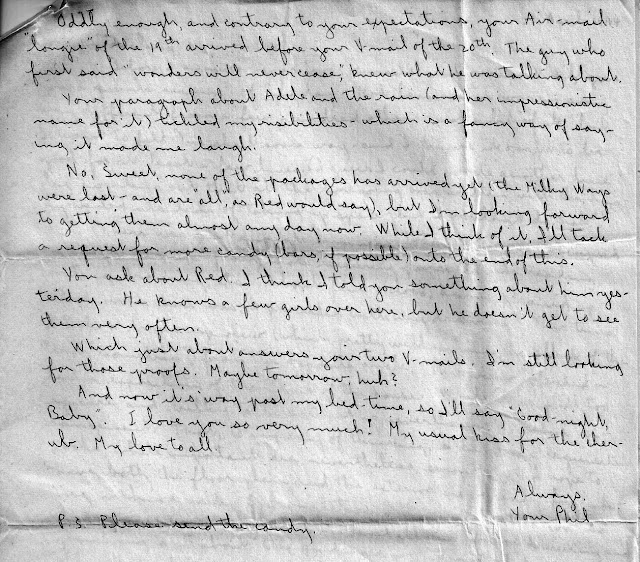 Oddly enough, and contrary to your expectations, your Air-mail
"longie" of the 19th arrived before your V-mail of the 20th. The guy who
first said "wonders will never cease," knew what he was talking about.
Your paragraph about Adele and the rain (and her impressionistic
name for it) tickled my risibilities - which is a fancy way of say-
ing it made me laugh.
No, Sweet, none of the packages has arrived yet (the Milky Ways
were last - and are "all", as Red would say), but I'm looking forward
to getting them almost any day now. While I think of it, I'll tack
a request for more candy (bars, if possible) onto the end of this.
You ask about Red. I think I told you something about him yes-
terday. He knows a few girls over here, but he doesn't get to see
them very often.
Which just about answers your two V-mails. I'm still looking
for those proofs. Maybe tomorrow, huh?
And now it's 'way past my bed-time, so I'll say "Good-night,
Baby". I love you so very much! My usual kiss for the cher-
ub. My love to all.
Always,
Your Phil
P.S. Please send the candy.